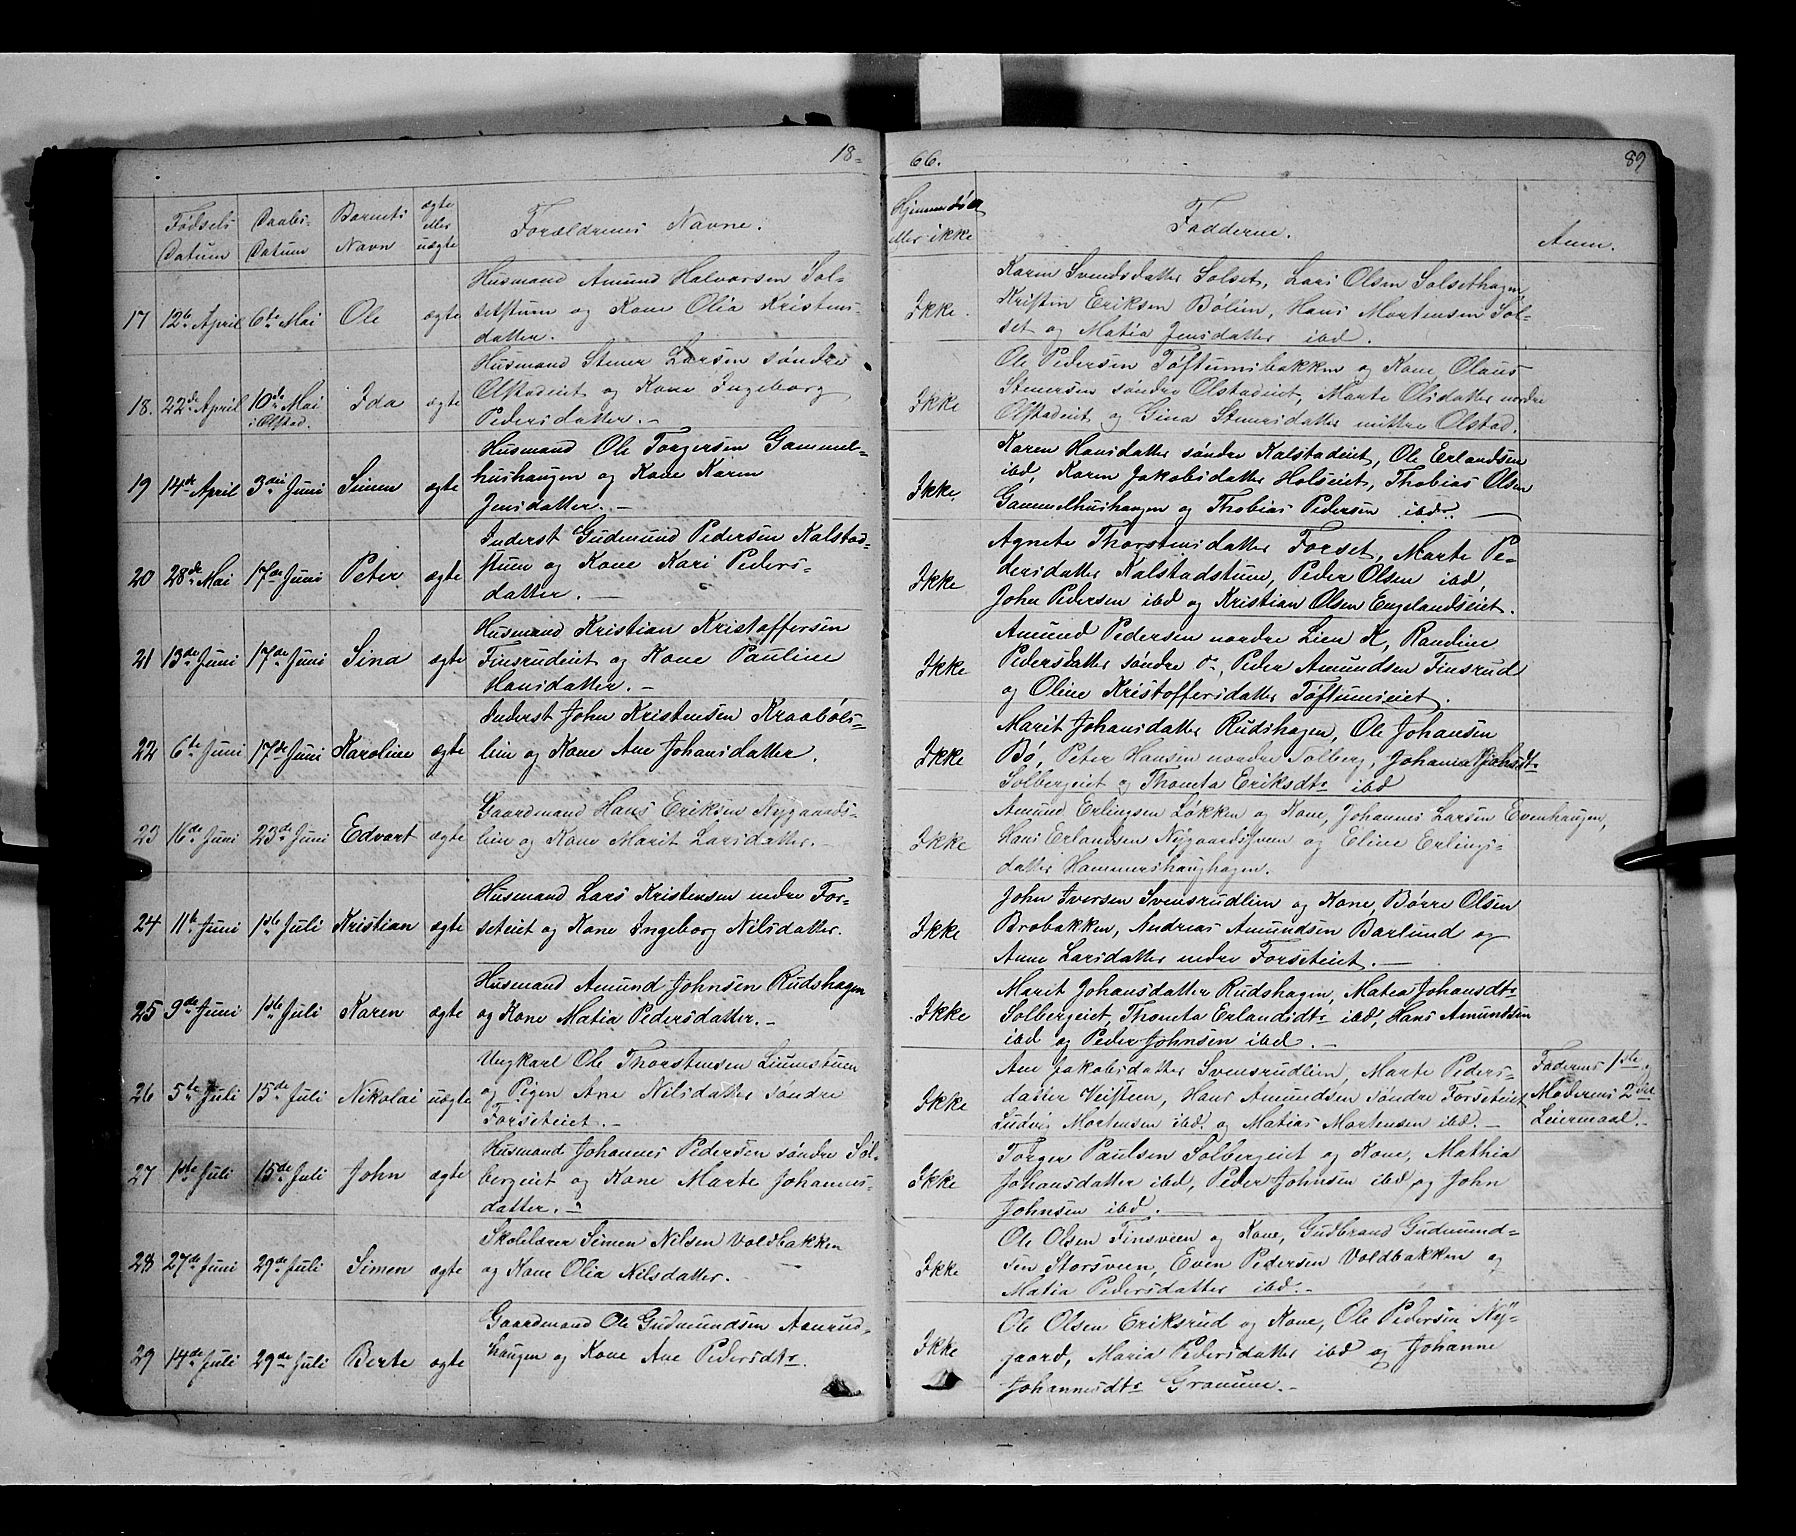 18-
66.
89
Fødsels Datum
Daabs- Datum
Barnets Navn
ægte eller uægte
Forældrenes Navne.
Hjemmedøbt eller ikke
Fadderne.
Anm.
17 12te April 6te Mai Ole ægte
Husmand Amund Halvorsen Sol-
setstuen og Kone Olia Kristens-
datter.
Ikke.
Karen Svendsdatter Solset, Lars Olsen Solsethagen,
Kristen Eriksen Bølien, Hans Mortensen Sol-
set og Matia Jensdatter ibd.
18. 22de April 10de Mai i Olstad. Ida ægte
Husmand Stener Larsen søndre
Olstadeiet og Kone Ingeborg
Pedersdatter.-
Ikke
Ole Pedersen Tøftumsbakken og Kone, Olaus
Stenersen søndre Olstadeiet, Marte Olsdatter nordre
Olstadeiet og Gina Stenersdatter mittre Olstad.
19 14de April 3die Juni Simen ægte
Husmand Ole Torgersen Gammel-
hushaugen og Kone Karen
Jensdatter.-
Ikke
Karen Hansdatter søndre Kalstadeiet, Ole Erlandsen
ibd, Karen Jakobsdatter Holseiet, Thobias Olsen
Gammelhushaugen og Thobias Pedersen ibdr. -
20 28de Mai 17de Juni Peter ægte
Inderst Gudmund Pedersen Kalstad-
stuen og Kone Kari Peders-
datter. -
Ikke
Agnete Thorstensdatter Forset, Marte Pe-
dersdatter Kalstadstuen, Peder Olsen ibd,
John Pedersen ibd og Kristian Olsen Engelandseiet.
21 13de Juni 17de Juni Sina ægte
Husmand Kristian Kristoffersen
Finsrudeiet og Kone Pauline
Hansdatter.-
Ikke
Amund Pedersen nordre Lien K, Randine
Pedersdatter søndre do, Peder Amundsen Finsrud
og Oline Kristoffersdatter Tøftumseiet.
22 6te Juni 17de Juni Karoline ægte
Inderst John Kristensen Kraabøls-
lien og Kone Ane Johansdatter.
Ikke
Marit Johansdatter Rudshagen, Ole Johansen
Bø, Peter Hansen nordre Solberg, Johanna Johsdtr
Solbergeiet og Thonetta Eriksdtr ibd
23 16de Juni 23de Juni Edvart ægte
Gaardmand Hans Eriksen Nygaards-
lien og Kone Marit Larsdatter.-
Ikke
Amund Erlingsen Løkken og Kone, Johannes Larsen Evenhaugen,
Hans Erlandsen Nygaardssveen og Eline Erlings-
datter Hammershaughagen.
24 11te Juni 1ste Juli Kristian ægte
Husmand Lars Kristensen nedre For-
seteiet og Kone Ingeborg Nilsdatter.
Ikke
John Iversen Svensrudlien og Kone, Børre Olsen
Brobakken, Andreas Amundsen Barlund og
Anne Larsdatter nedre Forseteiet.-
25 9de Juni 1ste Juli Karen ægte
Husmand Amund Johnsen Rudshagen
og Kone Matia Pedersdatter.-
Ikke
Marit Johansdatter Rudshagen, Matea Johansdtr
Solbergeiet, Thoneta Erlandsdtr ibd, Hans Amundsen
ibd og Peder Johnsen ibd.-
26 5te Juli 15de Juli Nikolai uægte
Ungkarl Ole Thorstensen Liumstuen
og Pigen Ane Nilsdatter søndre
Forseteiet.-
Ikke
Ane Jakobsdatter Svensrudlien, Marte Peders-
datter Veisteen, Hans Amundsen søndre Forseteiet
Ludvig Mortensen ibd. og Matias Mortensen ibd.-
Faderens 1ste og
Moderens 2det
Leiermaal.-
27 1ste Juli 15de Juli John ægte
Husmand Johannes Pedersen søndre Sol-
bergeiet og Kone Marte Johannes-
datter.-
Ikke
Torger Paulsen Solbergeiet og Kone, Mathia
Johansdatter ibd, Peder Johnsen ibd og John
Johnsen ibd.
28 27de Juni 29de Juli Simen ægte
Skolelærer Simen Nilsen Voldbakken
og Kone Olia Nilsdatter.-
Ikke
Ole Olsen Finsveen og Kone, Gudbrand Gudmund-
sen Storsveen, Even Pedersen Voldbakken og
Matia Pedersdatter ibd.-
29 14de Juli 29de Juli Berte ægte
Gaardmand Ole Gudmundsen Aanrud-
haugen og Kone Ane Pedersdtr.
Ikke
Ole Olsen Eriksrud og Kone, Ole Pedersen Ny-
gaard, Maria Pedersdatter ibd og Johanne
Johannesdtr Granum.-